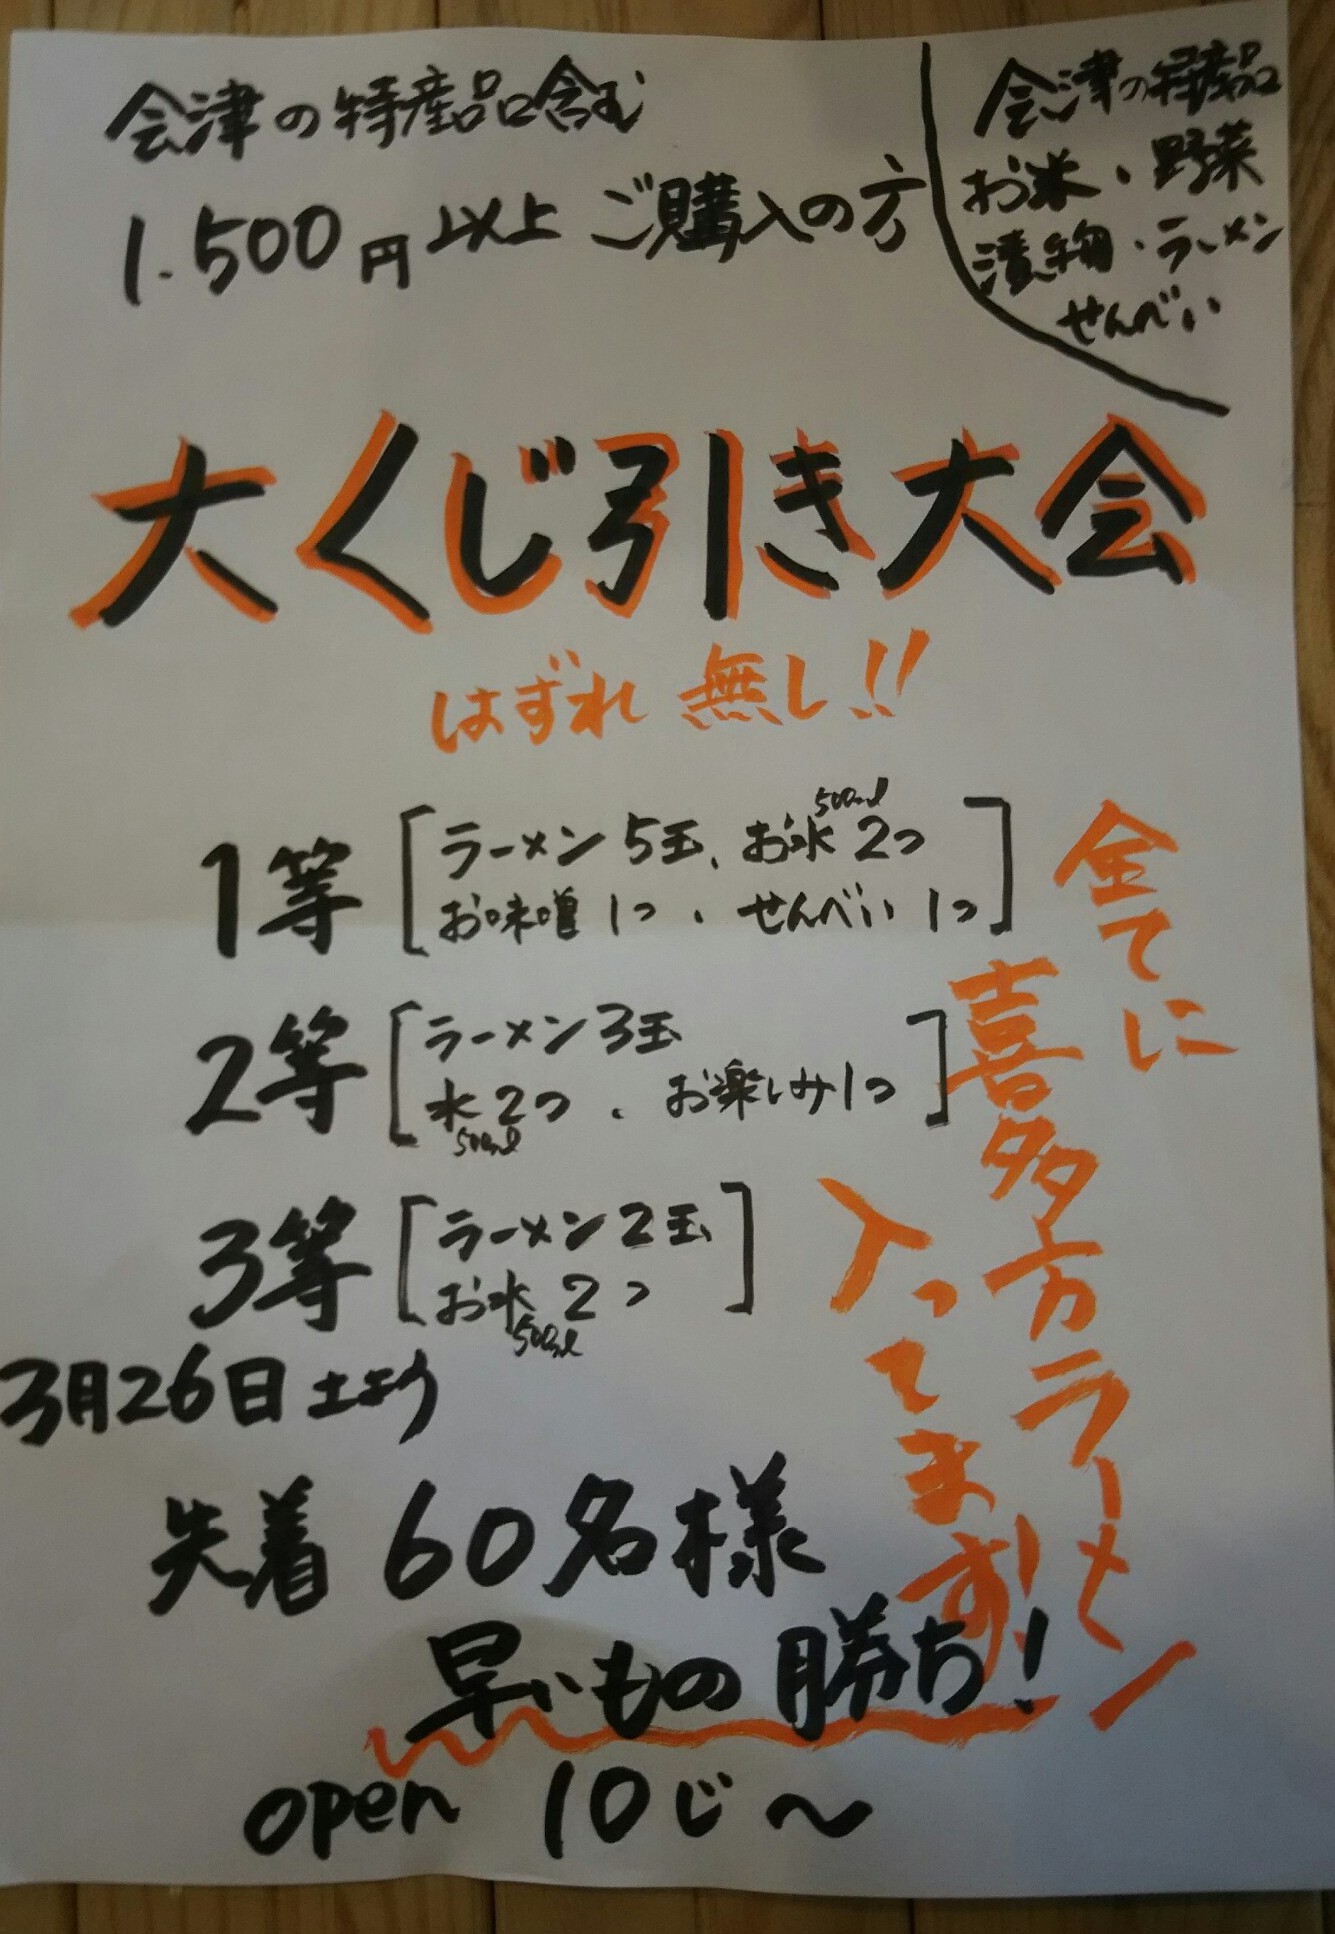 会津の特産品含む
1.500円以上ご購入の方
会津の特産品
お米・野菜
漬物・ラーメン
せんべい
大くじ引き大会
はずれ無し!!
1等
ラーメン5玉、お水2つ
500ml
お味噌1つ、せんべい1つ
2等
ラーメン3玉
水2つ、お楽しみ1つ
500ml
3等
ラーメン2玉
お水2つ
500ml
全てに
喜多方ラーメン
入ってます!
3月26日土より
先着60名様
早いもの勝ち!
open 10じ〜